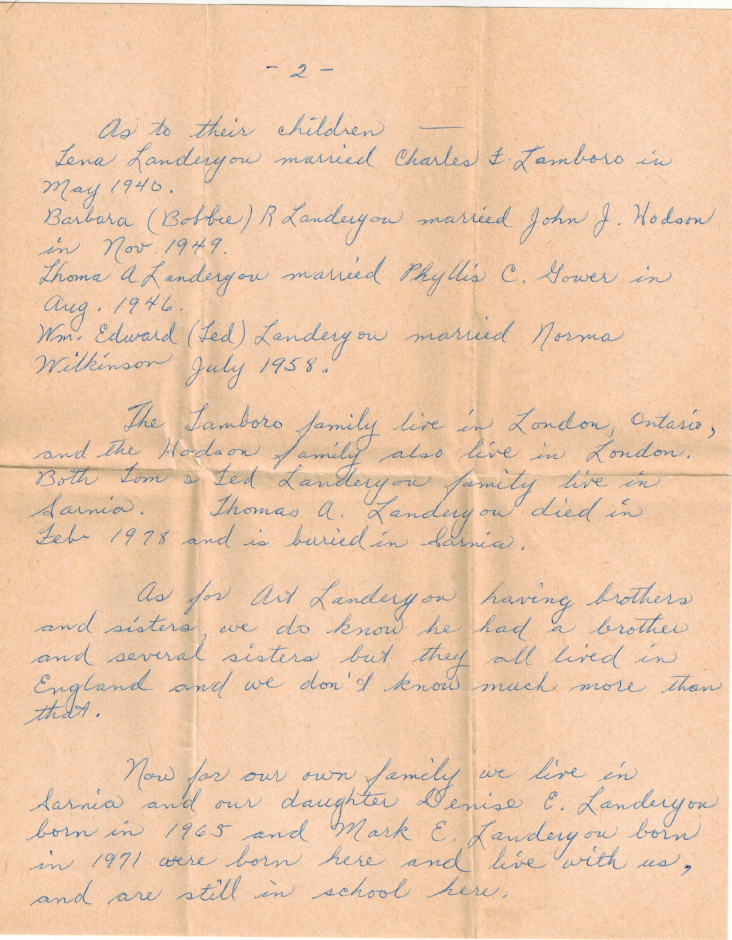 - 2 -
As to their children —
Lena Landeryou married Charles F. Lamboro in
May 1940.
Barbara (Bobbie) R Landeryou married John J. Hodson
in Nov. 1949.
Thoma A Landeryou married Phyllis C. Gower in
Aug. 1946.
Wm. Edward (Ted) Landeryou married Norma
Wilkinson July 1958.
The Lamboro family live in London, Ontario,
and the Hodson family also live in London.
Both Tom & Ted Landeryou family live in
Sarnia. Thomas A. Landeryou died in
Feb 1978 and is buried in Sarnia.
As for Art Landeryou having brothers
and sisters, we do know he had a brother
and several sisters but they all lived in
England and we don't know much more than
that.
Now for our own family we live in
Sarnia and our daughter Denise E. Landeryou
born in 1965 and Mark E. Landeryou born
in 1971 were born here and live with us,
and are still in school here.